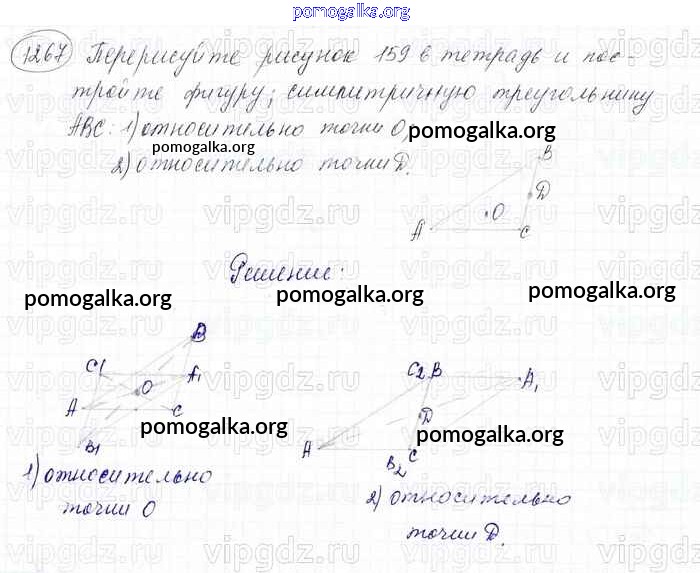 pomogalka.org
1267 Перерисуйте рисунок 159 в тетрадь и пос-
тройте фигуру, симметричную треугольнику
ABC: 1) относительно точки O,
pomogalka.org
pomogalka.org
2) относительно точки D.
B
D
O
A
C
Решение:
pomogalka.org
pomogalka.org
pomogalka.org
B
C1
A1
O
A
C
B1
C2 B
A1
D
A
B2
C
pomogalka.org
pomogalka.org
1) относительно
точки O
2) относительно
точки D.
vipgdz.ru